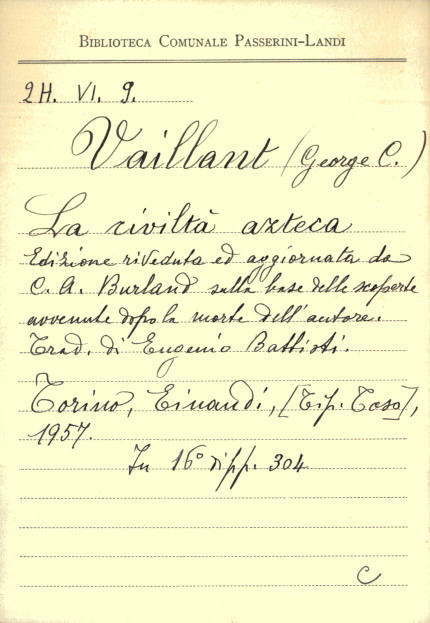 BIBLIOTECA COMUNALE PASSERINI-LANDI
2H. VI. 9.
Vaillant (George C.)
La civiltà azteca
Edizione riveduta ed aggiornata da
C. A. Burland sulla base delle scoperte
avvenute dopo la morte dell'autore.
Trad. di Eugenio Battisti.
Torino, Einaudi, [Tip. Toso],
1957.
In 16° di pp. 304
C